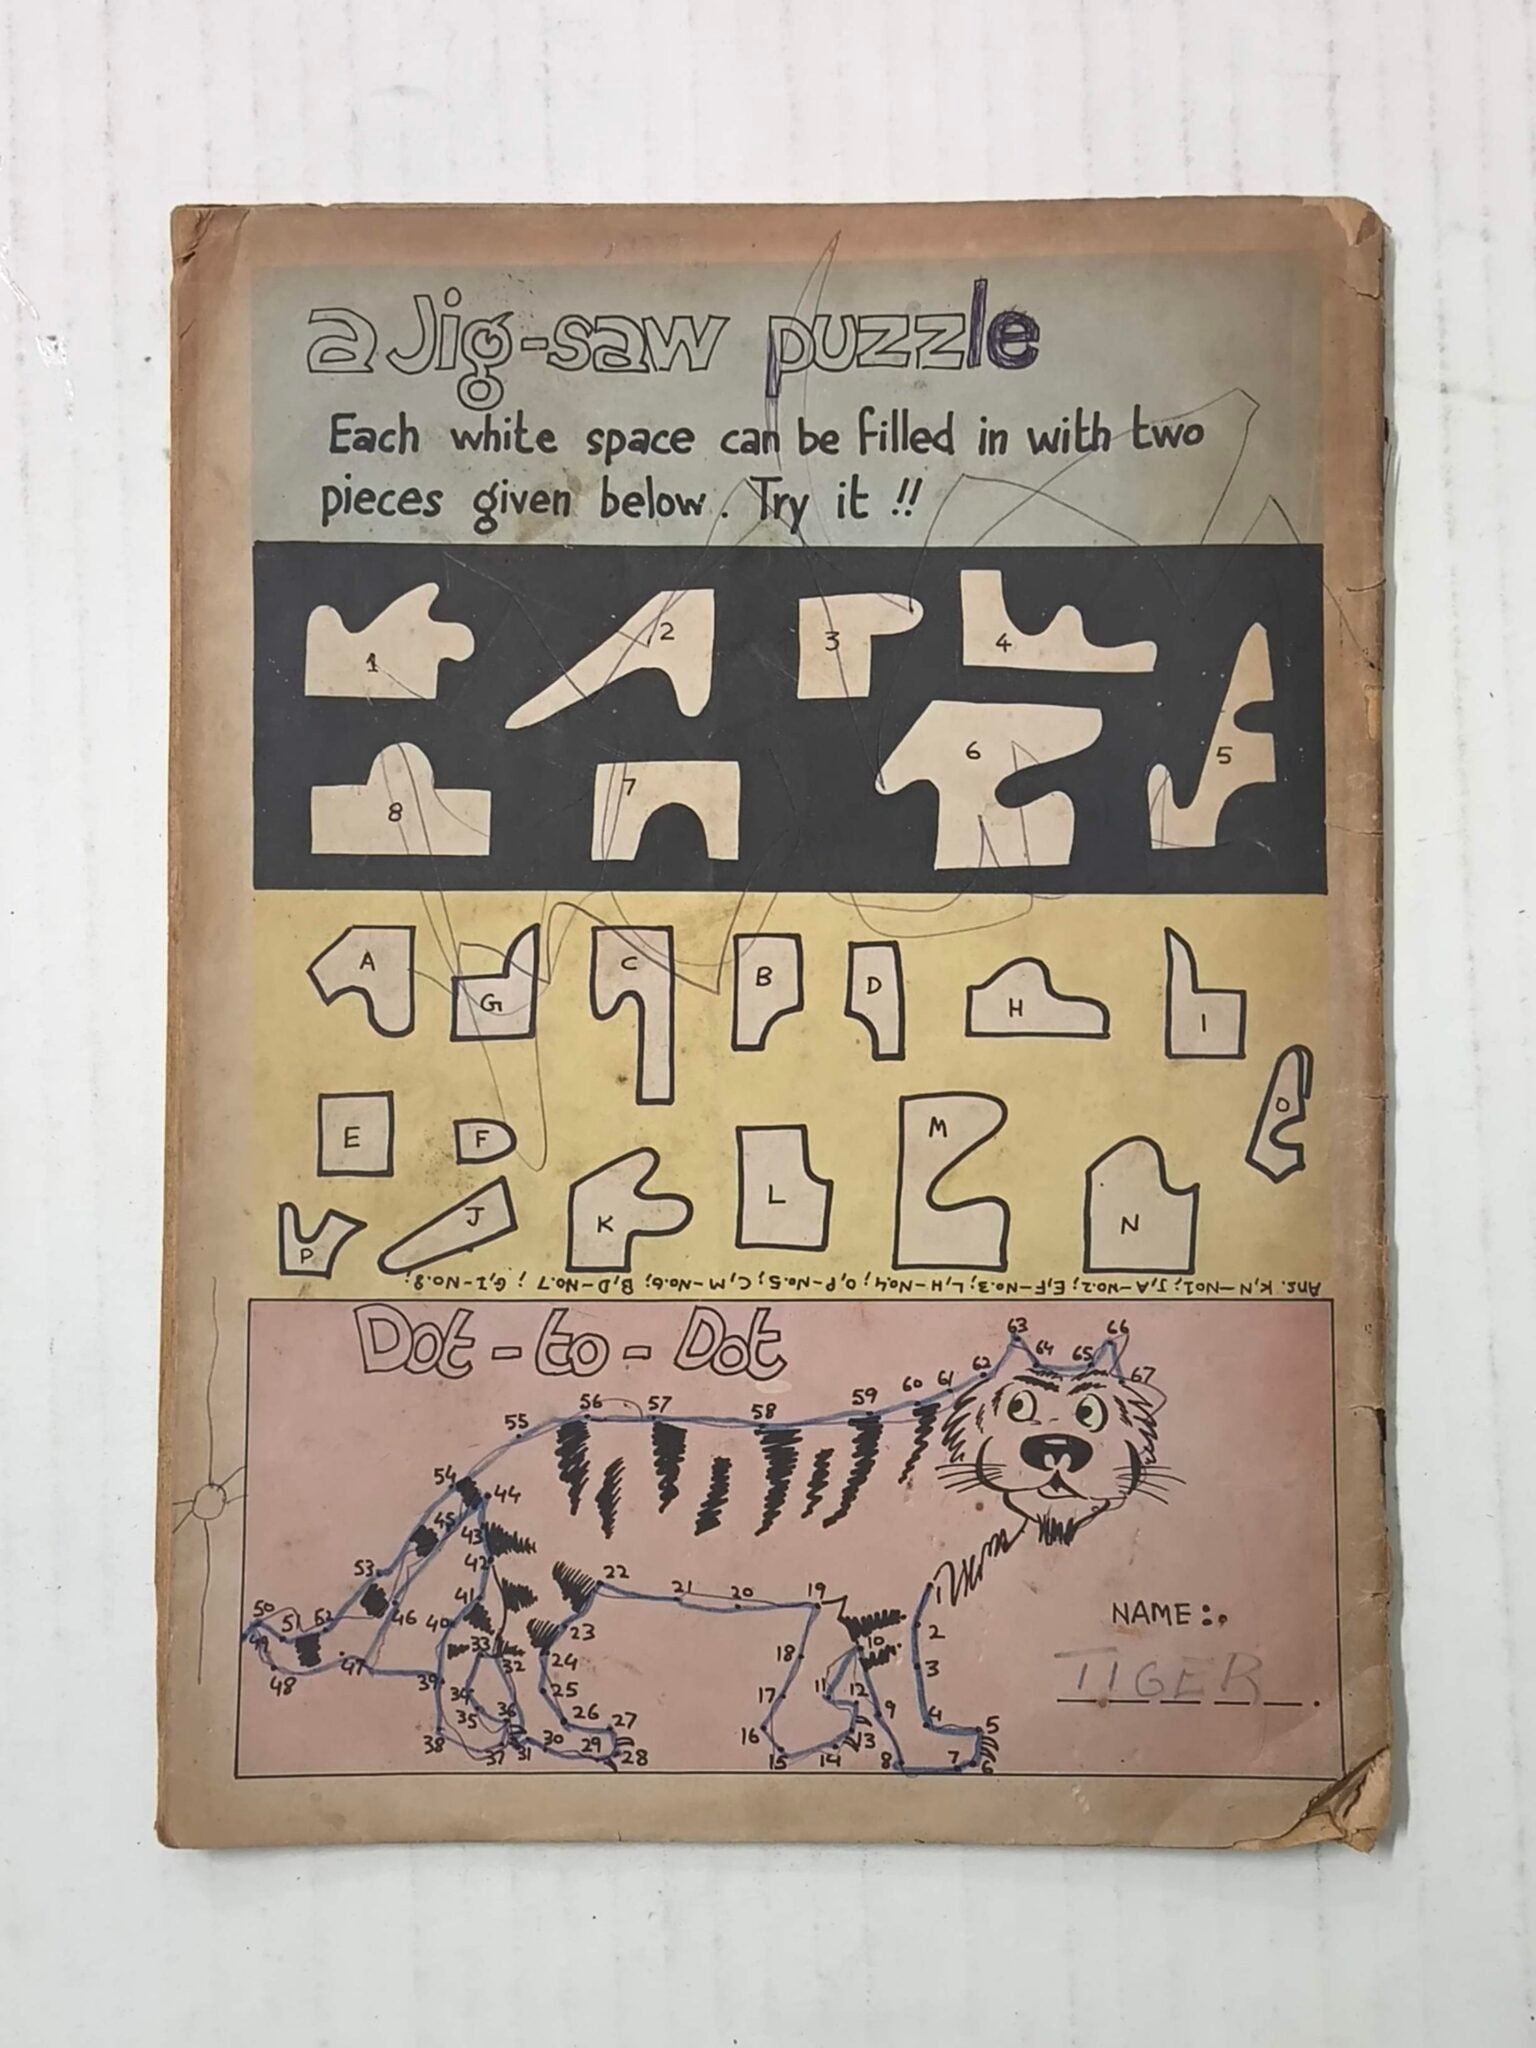 a Jig-saw puzzle
Each white space can be filled in with two
pieces given below. Try it !!
1 2 3 4
8 7 6 5
A G C B D H I
E F M O
P J K L N
Ans. K,N-No1; J,A-No.2; E,F-No.3; L,H-No.4; O,P-No.5; C,M-No.6; B,D-No.7; G,I-No.8;
Dot-to-Dot
63 66
64 65
56 57 58 59 60 61 62 67
55
54 44
45 43
53 42
22 21 20 19 1
50 51 52 46 41 40 23 10 2
NAME:.
49 47 33 32 24 18 3
48 39 34 25 17 11 12
TIGER
35 36 26 27 16 9 4 5
38 37 31 30 29 28 15 14 13 8 7 6